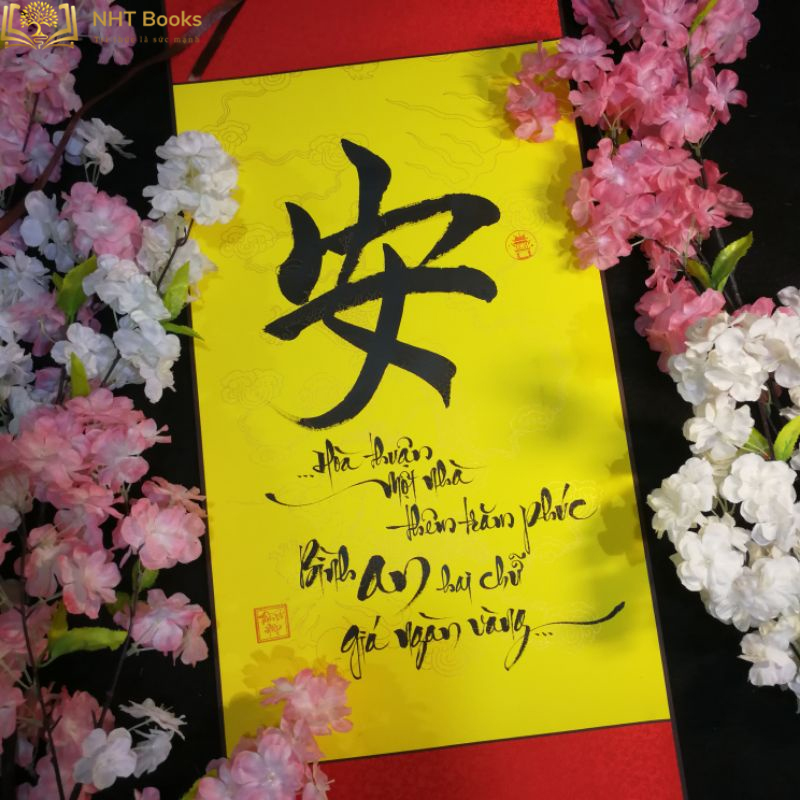 NHT Books
Tri thức là sức mạnh
安
...Hòa thuận
một nhà
thêm trăm phúc
Bình an hai chữ
giá ngàn vàng...